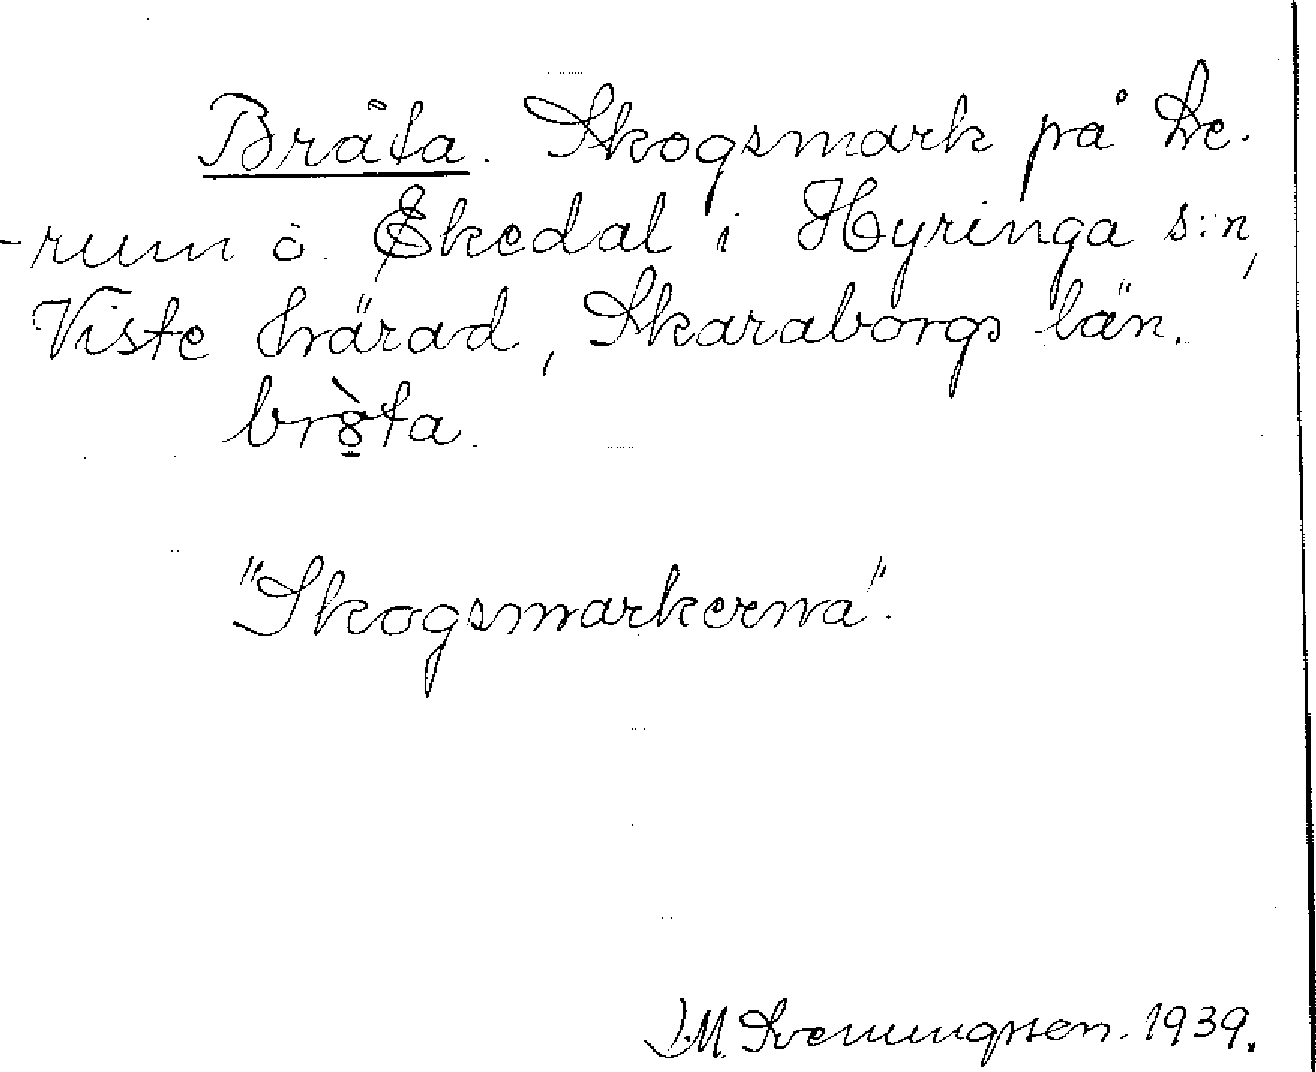 Bråta. Skogsmark på Le-
-rum o. Ekedal i Hyringa s:n,
Viste härad, Skaraborgs län.
bròta.
"Skogsmarkerna".
J.M. Svenungsson. 1939.